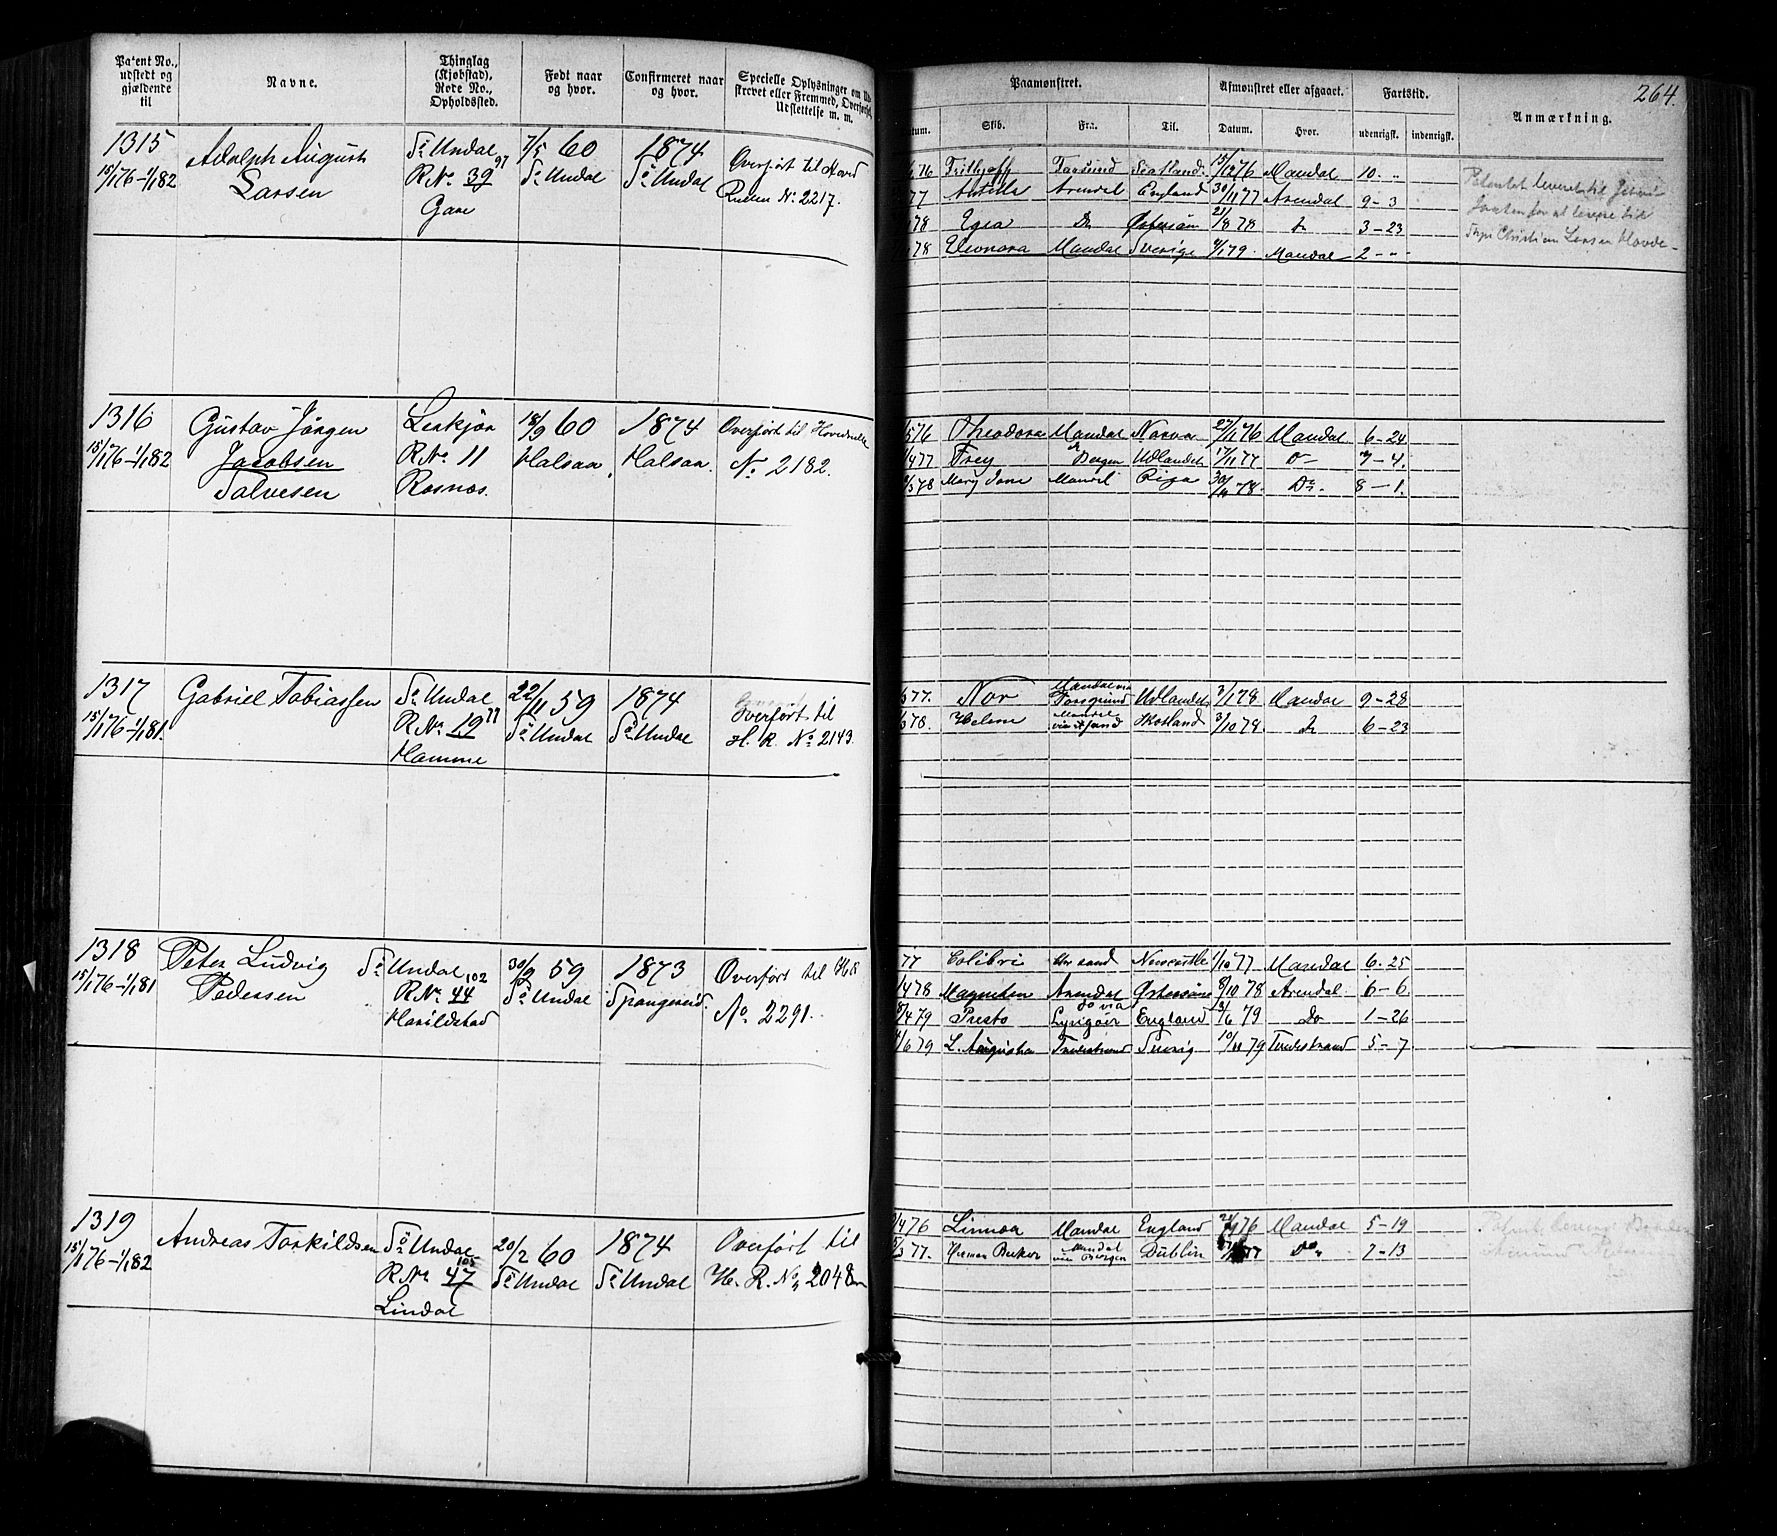 264.
Patent No., udstedt og gjældende til
Navne.
Thinglag (Kjøbstad), Rode No., Opholdssted.
Født naar og hvor.
Confirmeret naar og hvor.
Specielle Oplysninger om
Paamønstret.
Skib.
Fra.
Til.
Afmønstret eller afgaaet.
Datum.
Hvor.
Fartstid.
udenrigsk.
indenrigsk.
Anmærkning.
1315
15/1 76 - 1/1 82
Adolph August
Larsen
Sr Undal
R No 39 97
Gaae
7/5 60
Sr Undal
1874
Sr Undal
Overført til Hoved
Rullen No 2217.
76 Frithjoff Farsund Scotland. 15/12 76 Mandal 10 - „
77 Arendal England 30/11 77 Arendal 9 - 3
78 do Østersøen 21/8 78 do 3 - 23
78 Eleonora Mandal Sverige /1 79. Mandal 2 - „
1316
15/1 76 - 1/1 82
Gustav Jørgen
Jacobsen
Salvesen
R No 11
Rosnæs.
18/9 60
Halsaa.
1874
Halsaa.
Overført til Hovedrulle
No 2182.
76 Theodora Mandal Narva 27/11 76 Mandal 6 - 24
/4 77 Frey do Bergen Udlandet 17/11 77 do 7 - 4.
/3 78 Mary Jane Mandal Riga 30/11 78. Do. 8 - 1.
1317
15/1 76 - 1/1 81.
Gabriel Tobiassen
Sr Undal
R No 19 77
Hamme
22/11 59
Sr Undal
1874
Sr Undal
Overført til
H. R. No 2143.
77. Nor Mandal via Porsgrund Udlandet /1 78 Mandal 9 - 28
78. Helene Mandal Skotland 3/10 78. do 6 - 23
1318
15/1 76 - 1/1 81
Peter Ludvig
Pedersen
Sr Undal
R No 44 102
Harildstad
30/9 59
Sr Undal
1873
Spangereid
Overført til HR
No 2291.
77 Colibri Chrsand Newcastle 1/10 77 Mandal 6 - 25
/4 78 Magneten Arendal Østersøen 8/10 78 Arendal. 6 - 6
/4 79 Presto do via Lyngøer England /6 79 Do 1 - 26
/6 79 L. Augusta Tvedestrand Sverig 10/11 79 Tvedestrand 5 - 7
1319
15/1 76 - 1/1 82
Andreas Torkildsen
Sr Undal
R No 47 105
Lindal
20/2 60
Sr Undal
1874
Sr Undal
Overført til
H. R. No 2048
/4 76 Linnea Mandal England 76 Mandal 5 - 19
/3 77. Herman Becker Mandal via Bergen Dublin 77 Do 7 - 13